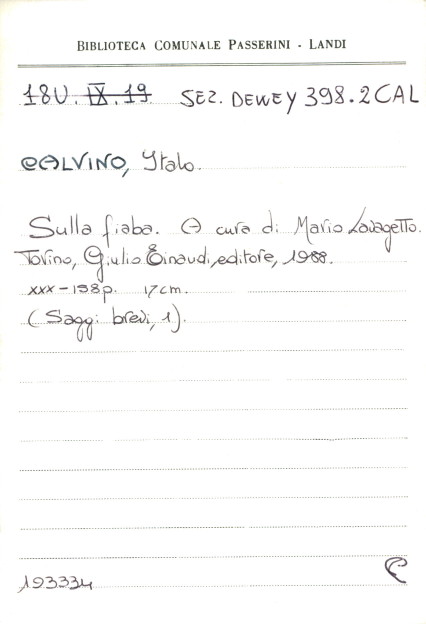 BIBLIOTECA COMUNALE PASSERINI - LANDI
18U. IX. 19 SEZ. DEWEY 398.2 CAL
CALVINO, Italo.
Sulla fiaba. A cura di Mario Lavagetto.
Torino, Giulio Einaudi, editore, 1988.
XXX-198p. 17cm.
(Saggi brevi, 1).
193334